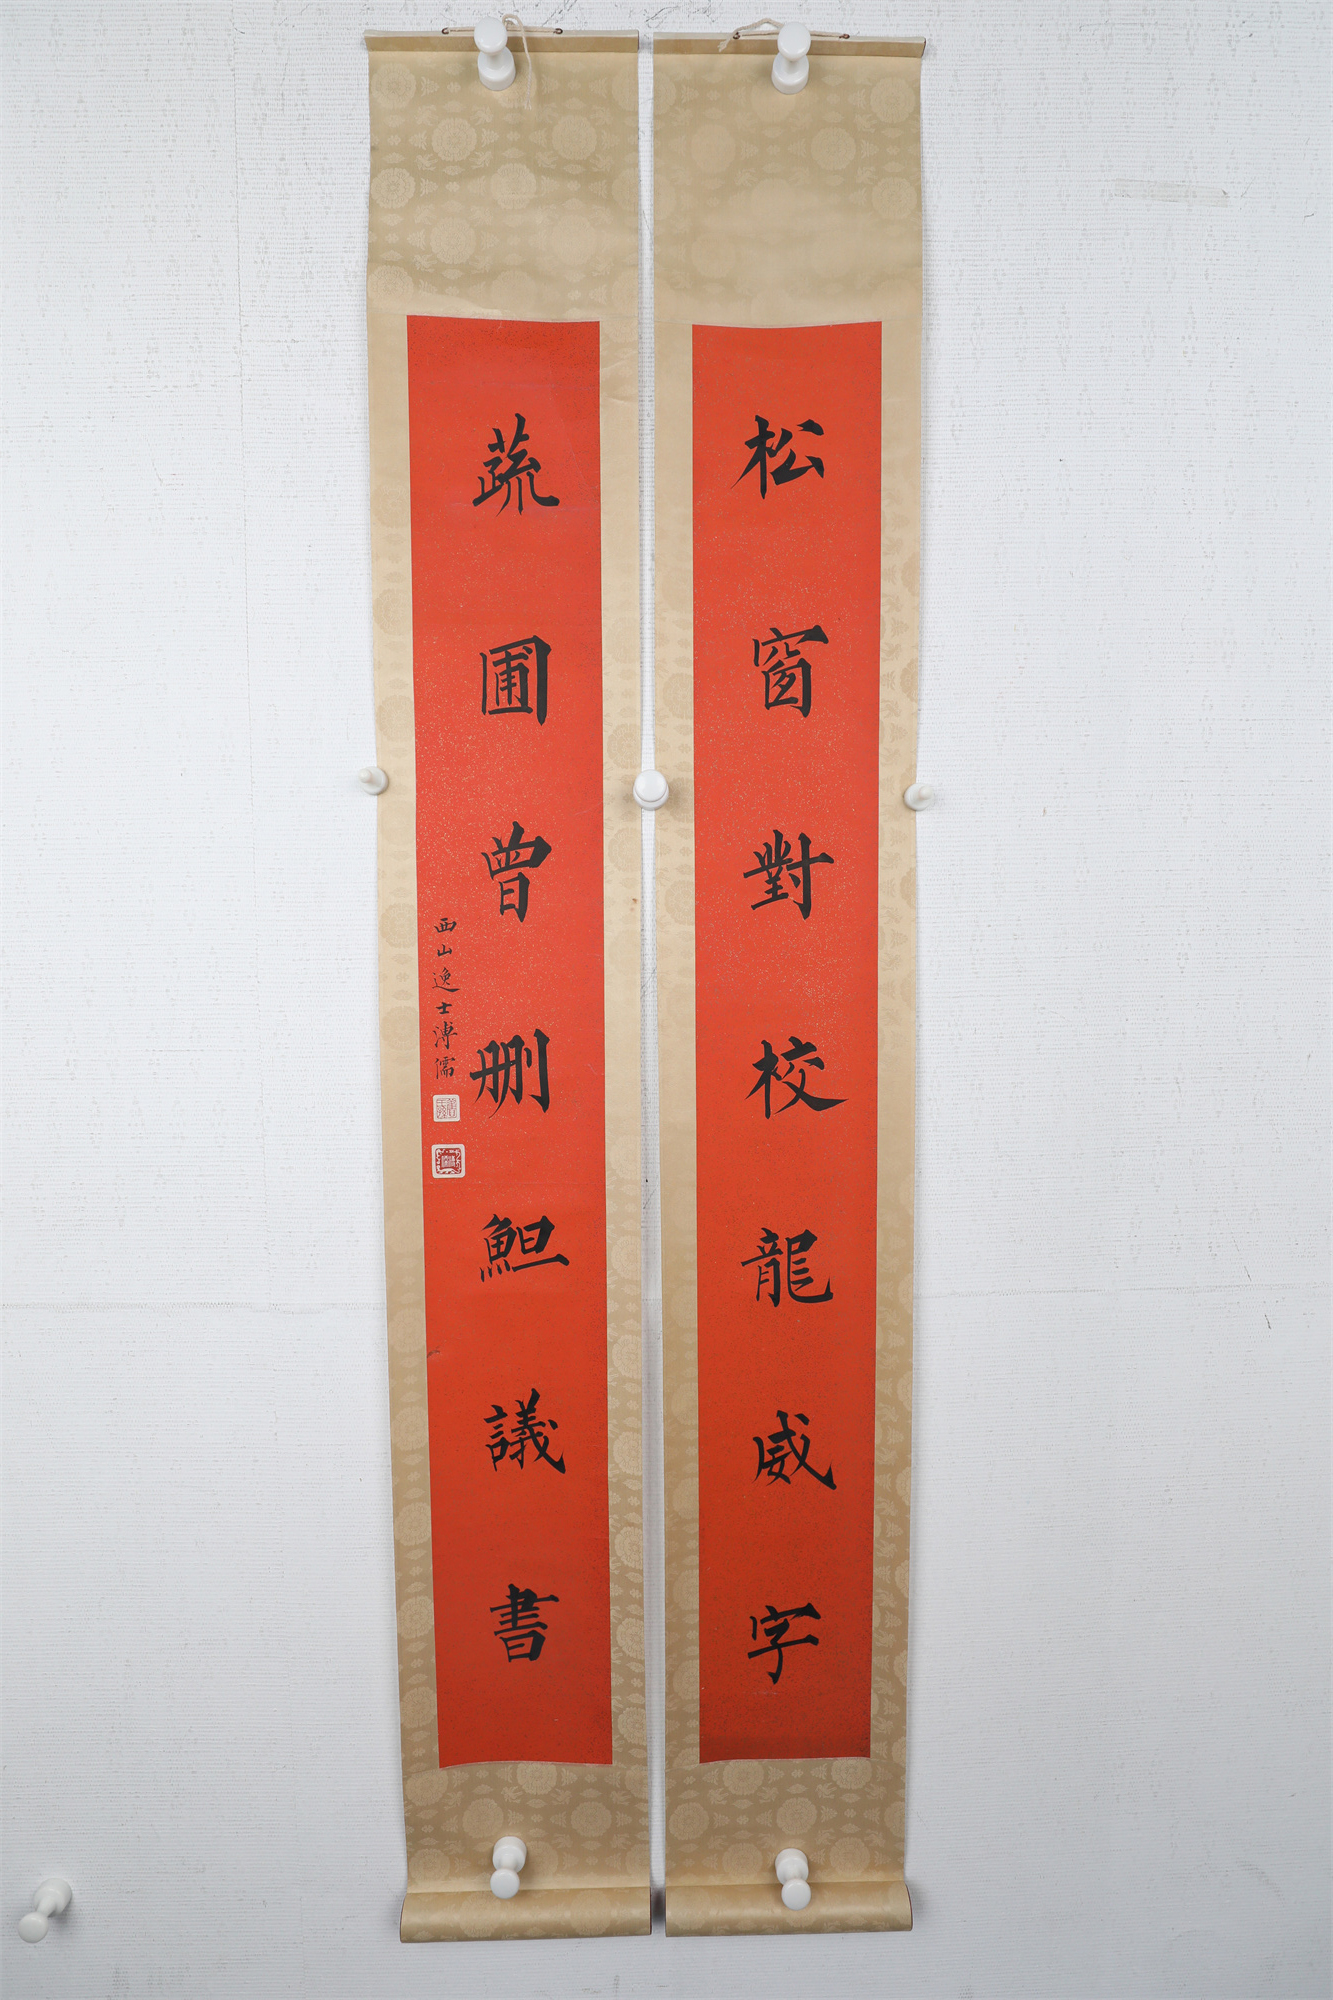 松窗對校龍威字
蔬圃曾删䱇議書
西山逸士溥儒